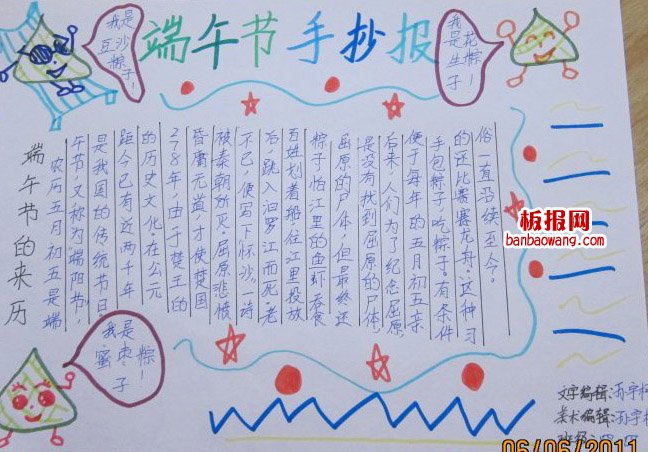 端午节手抄报
我是
豆沙
粽子!
我是
花生
粽子!
端午节的来历
农历五月初五是端
午节,又称为端阳节,
是我国的传统节日。
距今已有近两千年
的历史文化在公元
278年,由于楚王的
昏庸无道才使楚国
被秦朝所灭。屈原悲愤
不已,便写《怀沙》诗
后,跳入汨罗江而死。老
百姓划着船住江里投放
粽子,怕江里的鱼虾吞食
屈原的尸体,但最终还
是没有找到屈原的尸体,
后来,人们为了纪念屈原
便于每年的五月初五亲
手包粽子,吃粽子。有条件
的还比赛赛龙舟。这种习
俗一直沿续至今。
板报网
banbaowang.com
我是
蜜枣粽
子!
文字编辑:
美术编辑:
班级:
06/06/2011